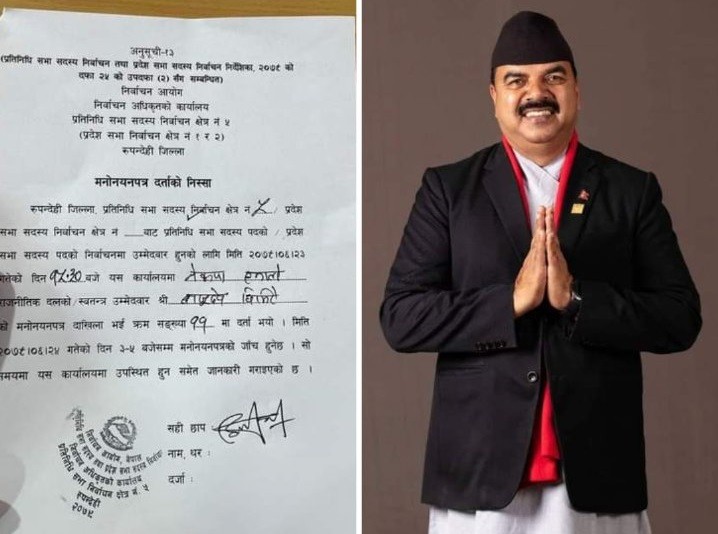 अनुसूची-१३
(प्रतिनिधि सभा सदस्य निर्वाचन तथा प्रदेश सभा सदस्य निर्वाचन निर्देशिका, २०७९ को
दफा २४ को उपदफा (२) सँग सम्बन्धित)
निर्वाचन आयोग
निर्वाचन अधिकृतको कार्यालय
प्रतिनिधि सभा सदस्य निर्वाचन क्षेत्र नं ५
(प्रदेश सभा निर्वाचन क्षेत्र नं १ र २)
रूपन्देही जिल्ला
मनोनयनपत्र दर्ताको निस्सा
रूपन्देही जिल्ला, प्रतिनिधि सभा सदस्य निर्वाचन क्षेत्र नं ५ / प्रदेश
सभा सदस्य निर्वाचन क्षेत्र नं बाट प्रतिनिधि सभा सदस्य पदको / प्रदेश
सभा सदस्य पदको निर्वाचनमा उम्मेदवार हुनको लागि मिति २०७९।०६।२३
गतेको दिन बजे यस कार्यालयमा
राजनीतिक दलको/स्वतन्त्र उम्मेदवार श्री
को मनोनयनपत्र दाखिला भई क्रम सङ्ख्या ११ मा दर्ता भयो । मिति
२०७९।०६।२४ गतेको दिन ३-५ बजेसम्म मनोनयनपत्रको जाँच हुनेछ । सो
समयमा यस कार्यालयमा उपस्थित हुन समेत जानकारी गराइएको छ ।
सही छाप
नाम, थर :
दर्जा :
निर्वाचन आयोग, नेपाल
निर्वाचन अधिकृतको कार्यालय
प्रतिनिधि सभा निर्वाचन क्षेत्र नं. ५
रुपन्देही
२०७९